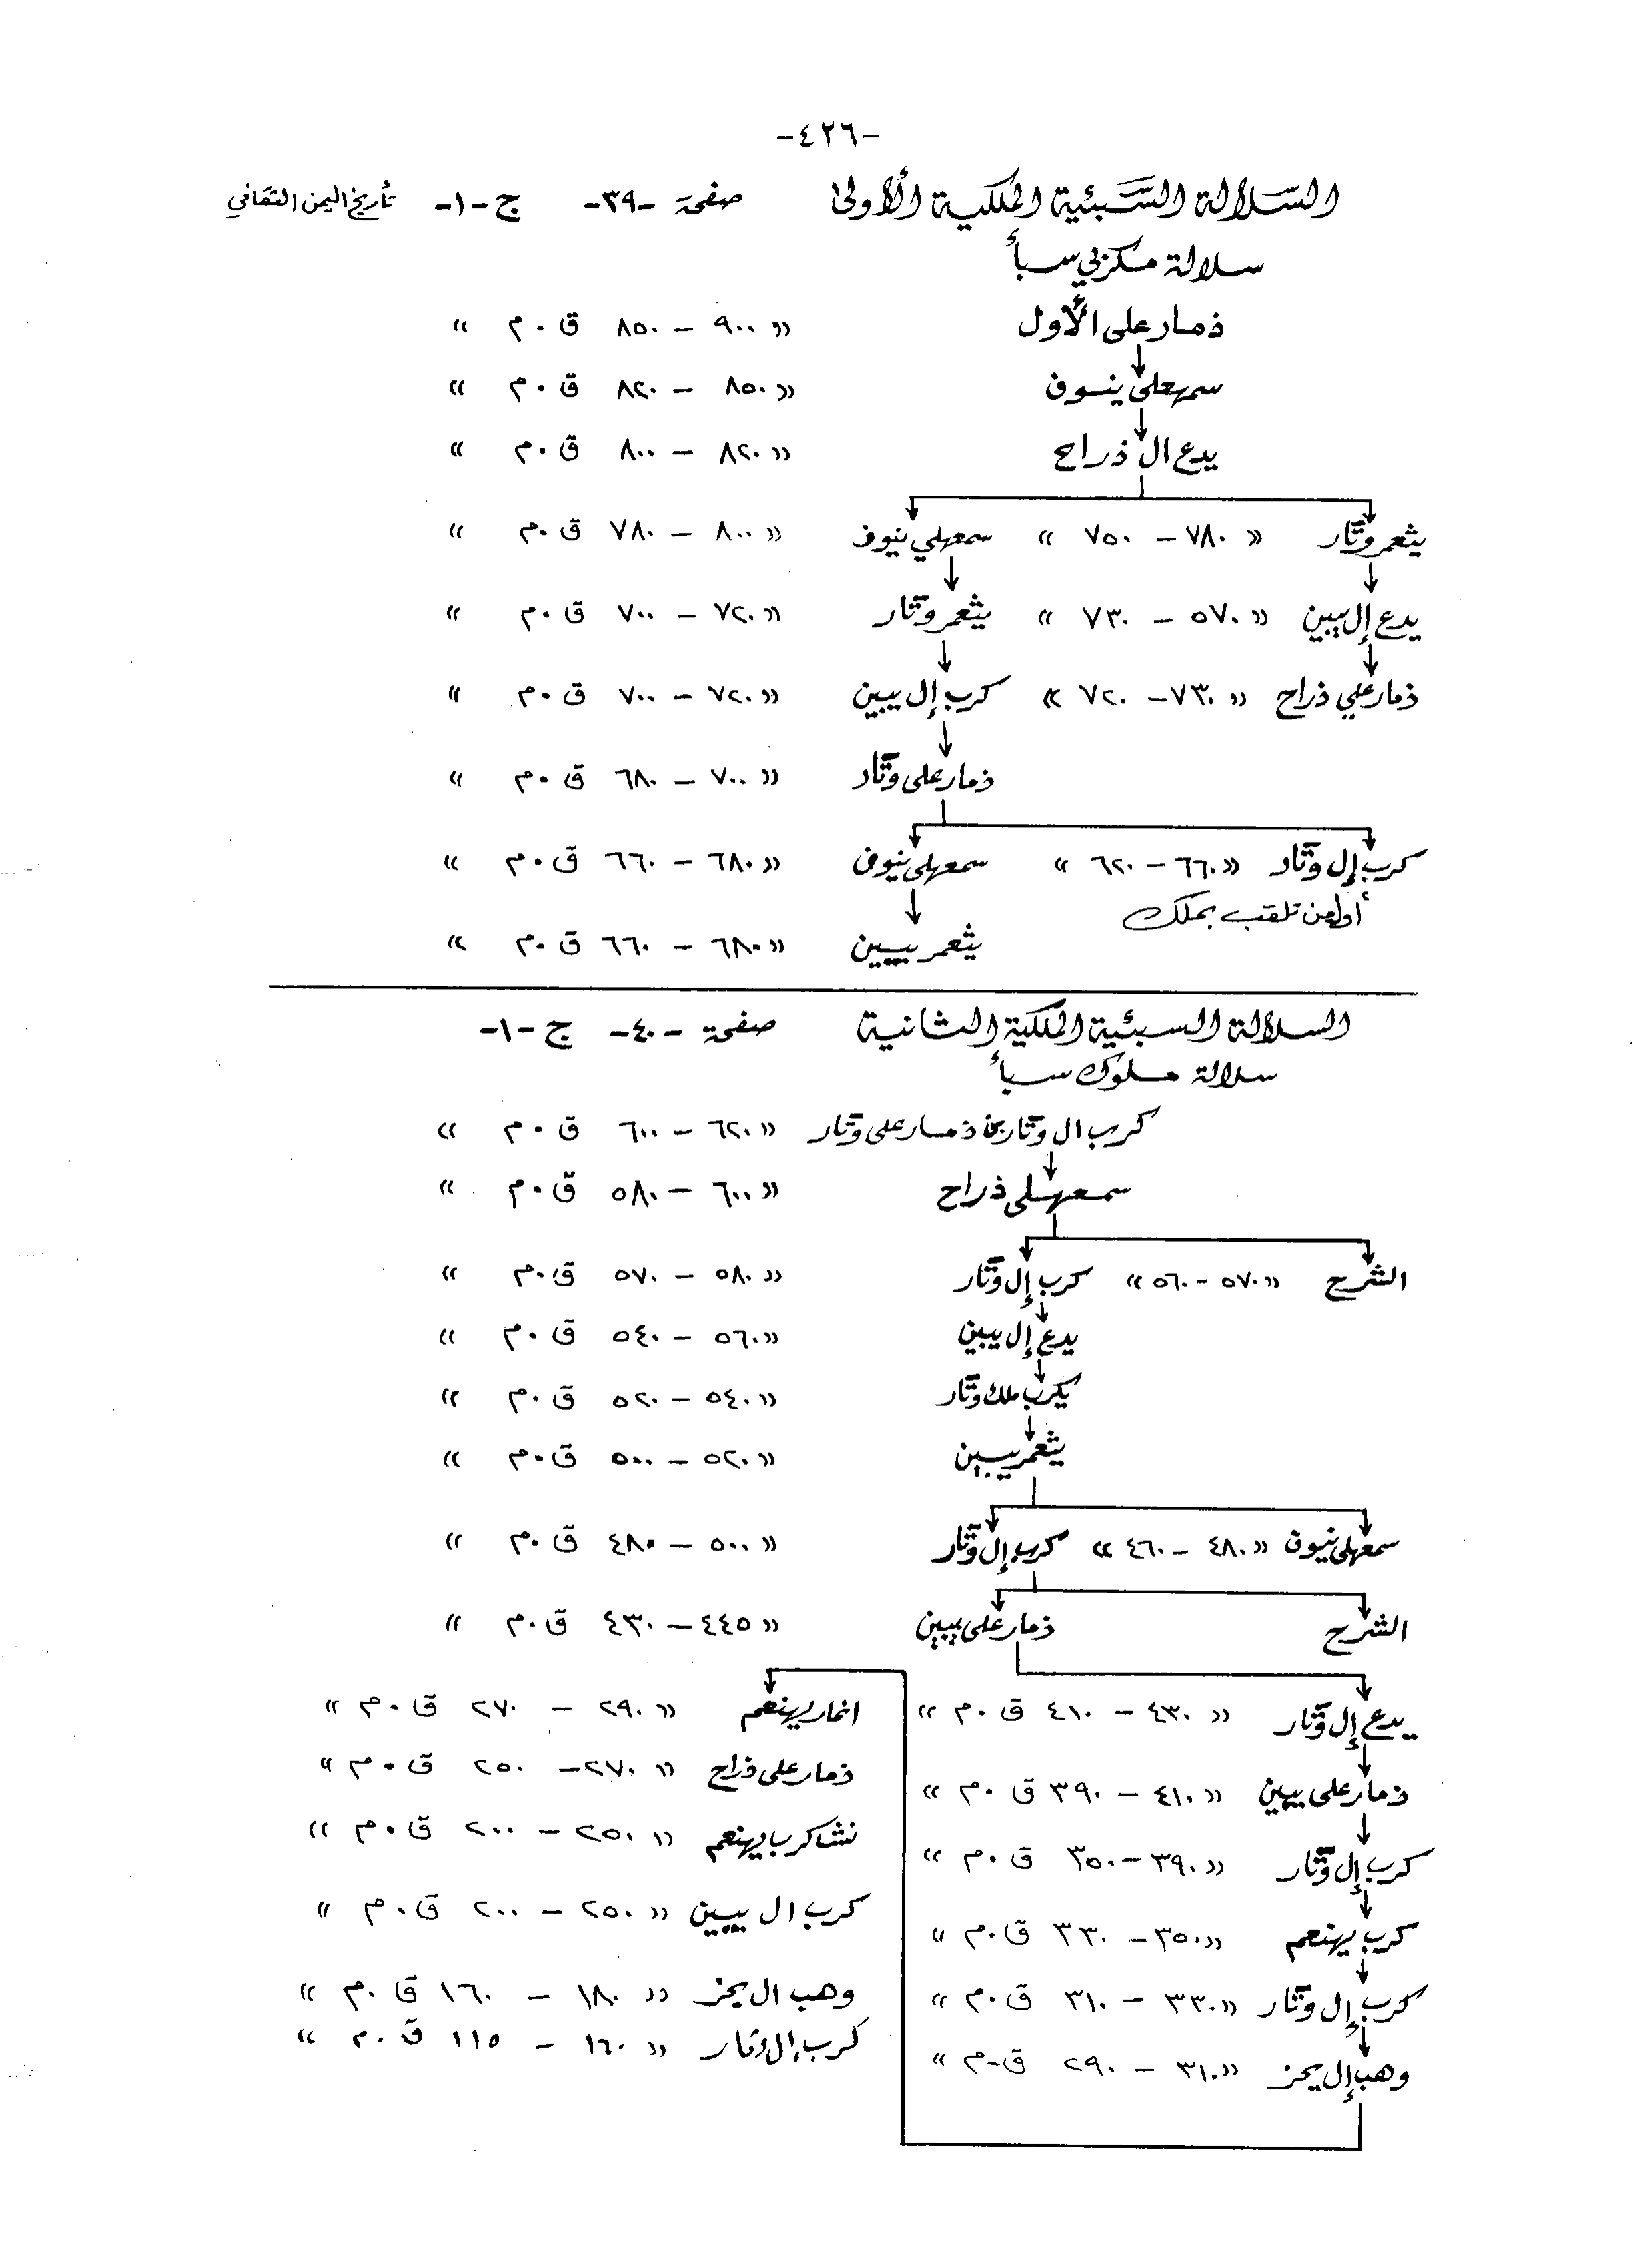 -٤٢٦-
السلالة السبئية الملكية الأولى صفحة -٣٩- ج -١- تأريخ اليمن الثقافي
سلالة مكربي سبأ
ذمار على الأول « ٩٠٠ – ٨٥٠ ق ٠ م »
سمهعلي ينوف « ٨٥٠ – ٨٢٠ ق ٠ م »
يدع ال ذراح « ٨٢٠ – ٨٠٠ ق ٠ م »
يثعمر وتار « ٧٨٠ – ٧٥٠ » سمعهلي نيوف « ٨٠٠ – ٧٨٠ ق ٠ م »
يدع إل يبين « ٥٧٠ – ٧٣٠ » يثعمر وتار « ٧٢٠ – ٧٠٠ ق ٠ م »
ذمار علي ذراح « ٧٣٠ – ٧٢٠ » كرب إل يبين « ٧٢٠ – ٧٠٠ ق ٠ م »
ذمار على وتار « ٧٠٠ – ٦٨٠ ق ٠ م »
كرب إل وتار « ٦٦٠ – ٦٢٠ » سمعهلى نيوف « ٦٨٠ – ٦٦٠ ق ٠ م »
أول من تلقب بملك
يثعمر يبين « ٦٨٠ – ٦٦٠ ق ٠ م »
السلالة السبئية الملكية الثانية صفحة -٤٠- ج -١-
سلالة ملوك سبأ
كرب ال وتار بن ذمار على وتار « ٦٢٠ – ٦٠٠ ق ٠ م »
سمعهلى ذراح « ٦٠٠ – ٥٨٠ ق ٠ م »
الشرح « ٥٧٠ - ٥٦٠ » كرب إل وتار « ٥٨٠ – ٥٧٠ ق ٠ م »
يدع إل يبين « ٥٦٠ – ٥٤٠ ق ٠ م »
يكرب ملك وتار « ٥٤٠ – ٥٢٠ ق ٠ م »
يثعمر يبين « ٥٢٠ – ٥٠٠ ق ٠ م »
سمعهلى نيوف « ٤٨٠ – ٤٦٠ » كرب إل وتار « ٥٠٠ – ٤٨٠ ق ٠ م »
الشرح ذمار على يبين « ٤٤٥ – ٤٣٠ ق ٠ م »
يدع إل وتار « ٤٣٠ – ٤١٠ ق ٠ م »
ذمار على يبين « ٤١٠ – ٣٩٠ ق ٠ م »
كرب إل وتار « ٣٩٠ – ٣٥٠ ق ٠ م »
كرب يهنعم « ٣٥٠ – ٣٣٠ ق ٠ م »
كرب إل وتار « ٣٣٠ – ٣١٠ ق ٠ م »
وهب إل يحز « ٣١٠ – ٢٩٠ ق ٠ م »
انمار يهنعم « ٢٩٠ – ٢٧٠ ق ٠ م »
ذمار على ذراح « ٢٧٠ – ٢٥٠ ق ٠ م »
نشاكرب يهنعم « ٢٥٠ – ٢٠٠ ق ٠ م »
كرب ال يبين « ٢٥٠ – ٢٠٠ ق ٠ م »
وهب ال يحز « ١٨٠ – ١٦٠ ق ٠ م »
كرب إل وتار « ١٦٠ – ١١٥ ق ٠ م »